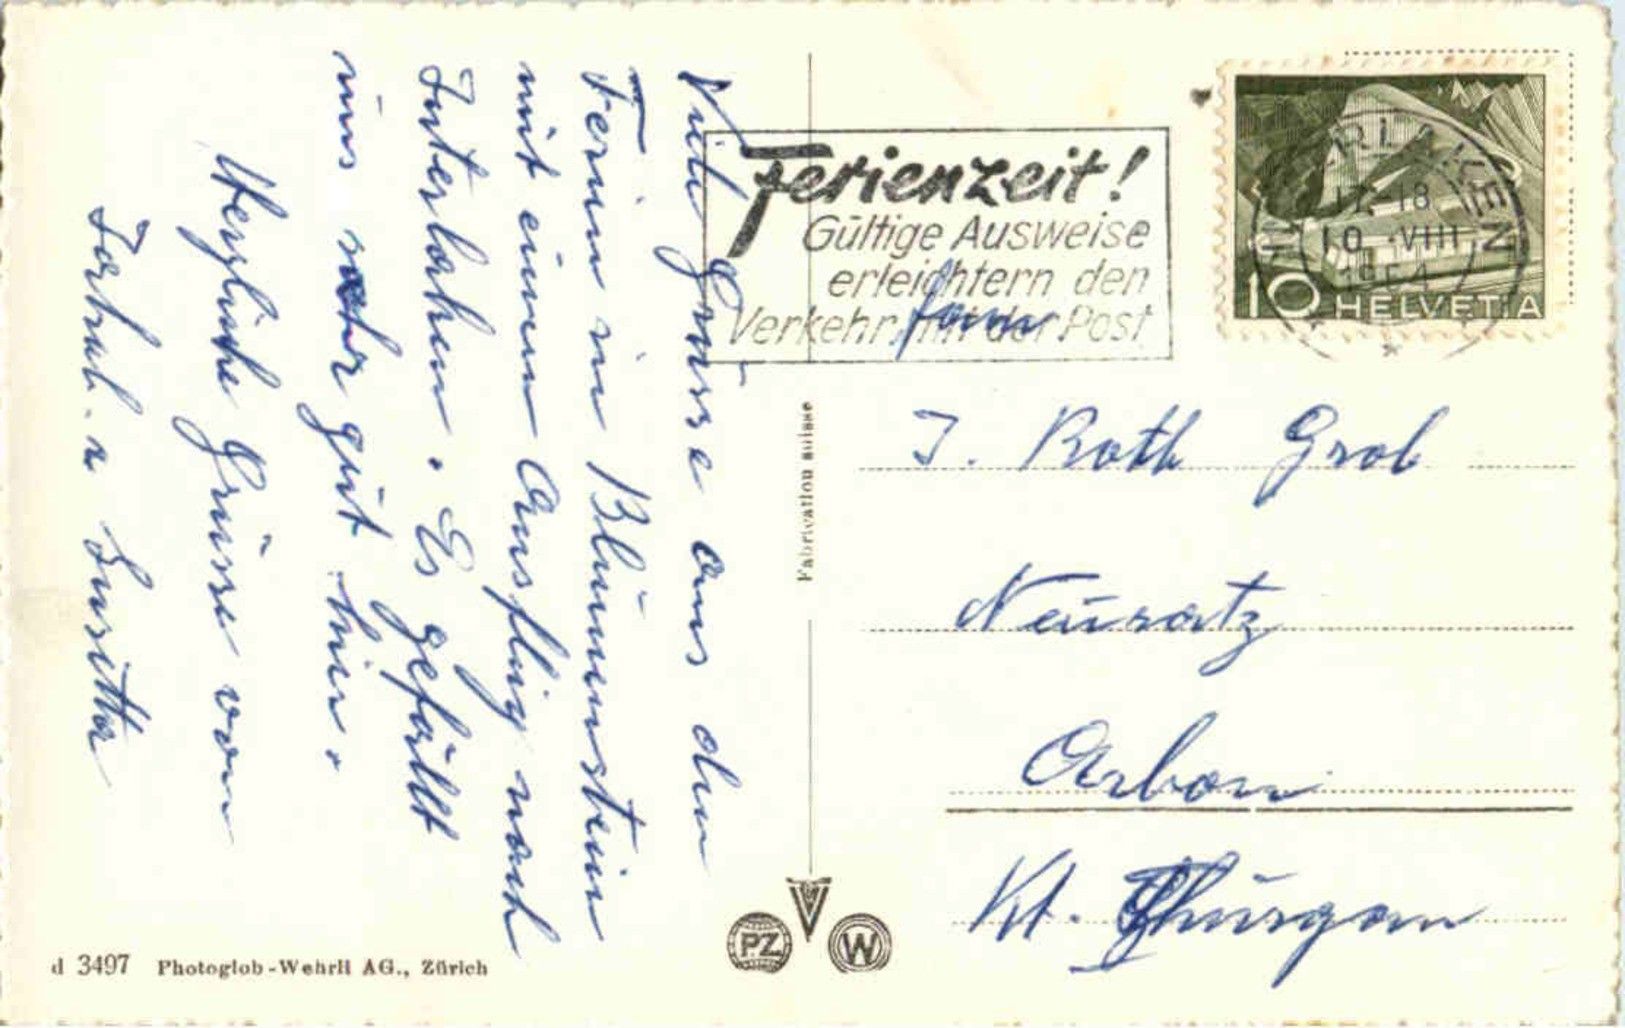 Viele Grüsse aus den
Ferien in Blumenstein
mit einem Ausflug nach
Interlaken. Es gefällt
uns sehr gut hier.
Herzliche Grüsse von
Ferienzeit!
Gültige Ausweise
erleichtern den
Verkehr mit der Post
INTERLAKEN
17-18
10.VIII
1954
10 HELVETIA
Fam
J. Roth Grob
Neusatz
Arbon
Kt. Thurgau
Fabrication suisse
PZ
W
d 3497 Photoglob-Wehrli AG., Zürich